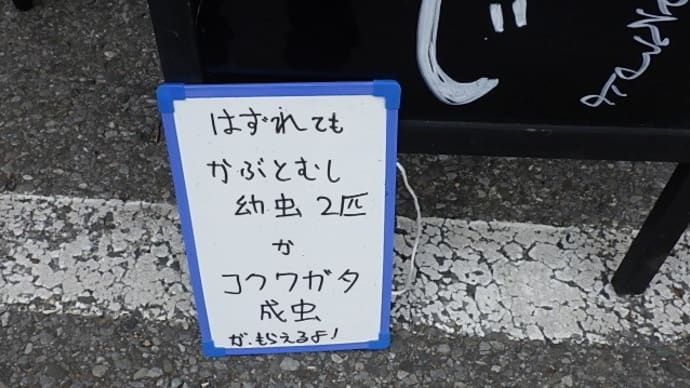 はずれても
かぶとむし
幼虫 2匹
か
コクワガタ
成虫
が、もらえるよ!